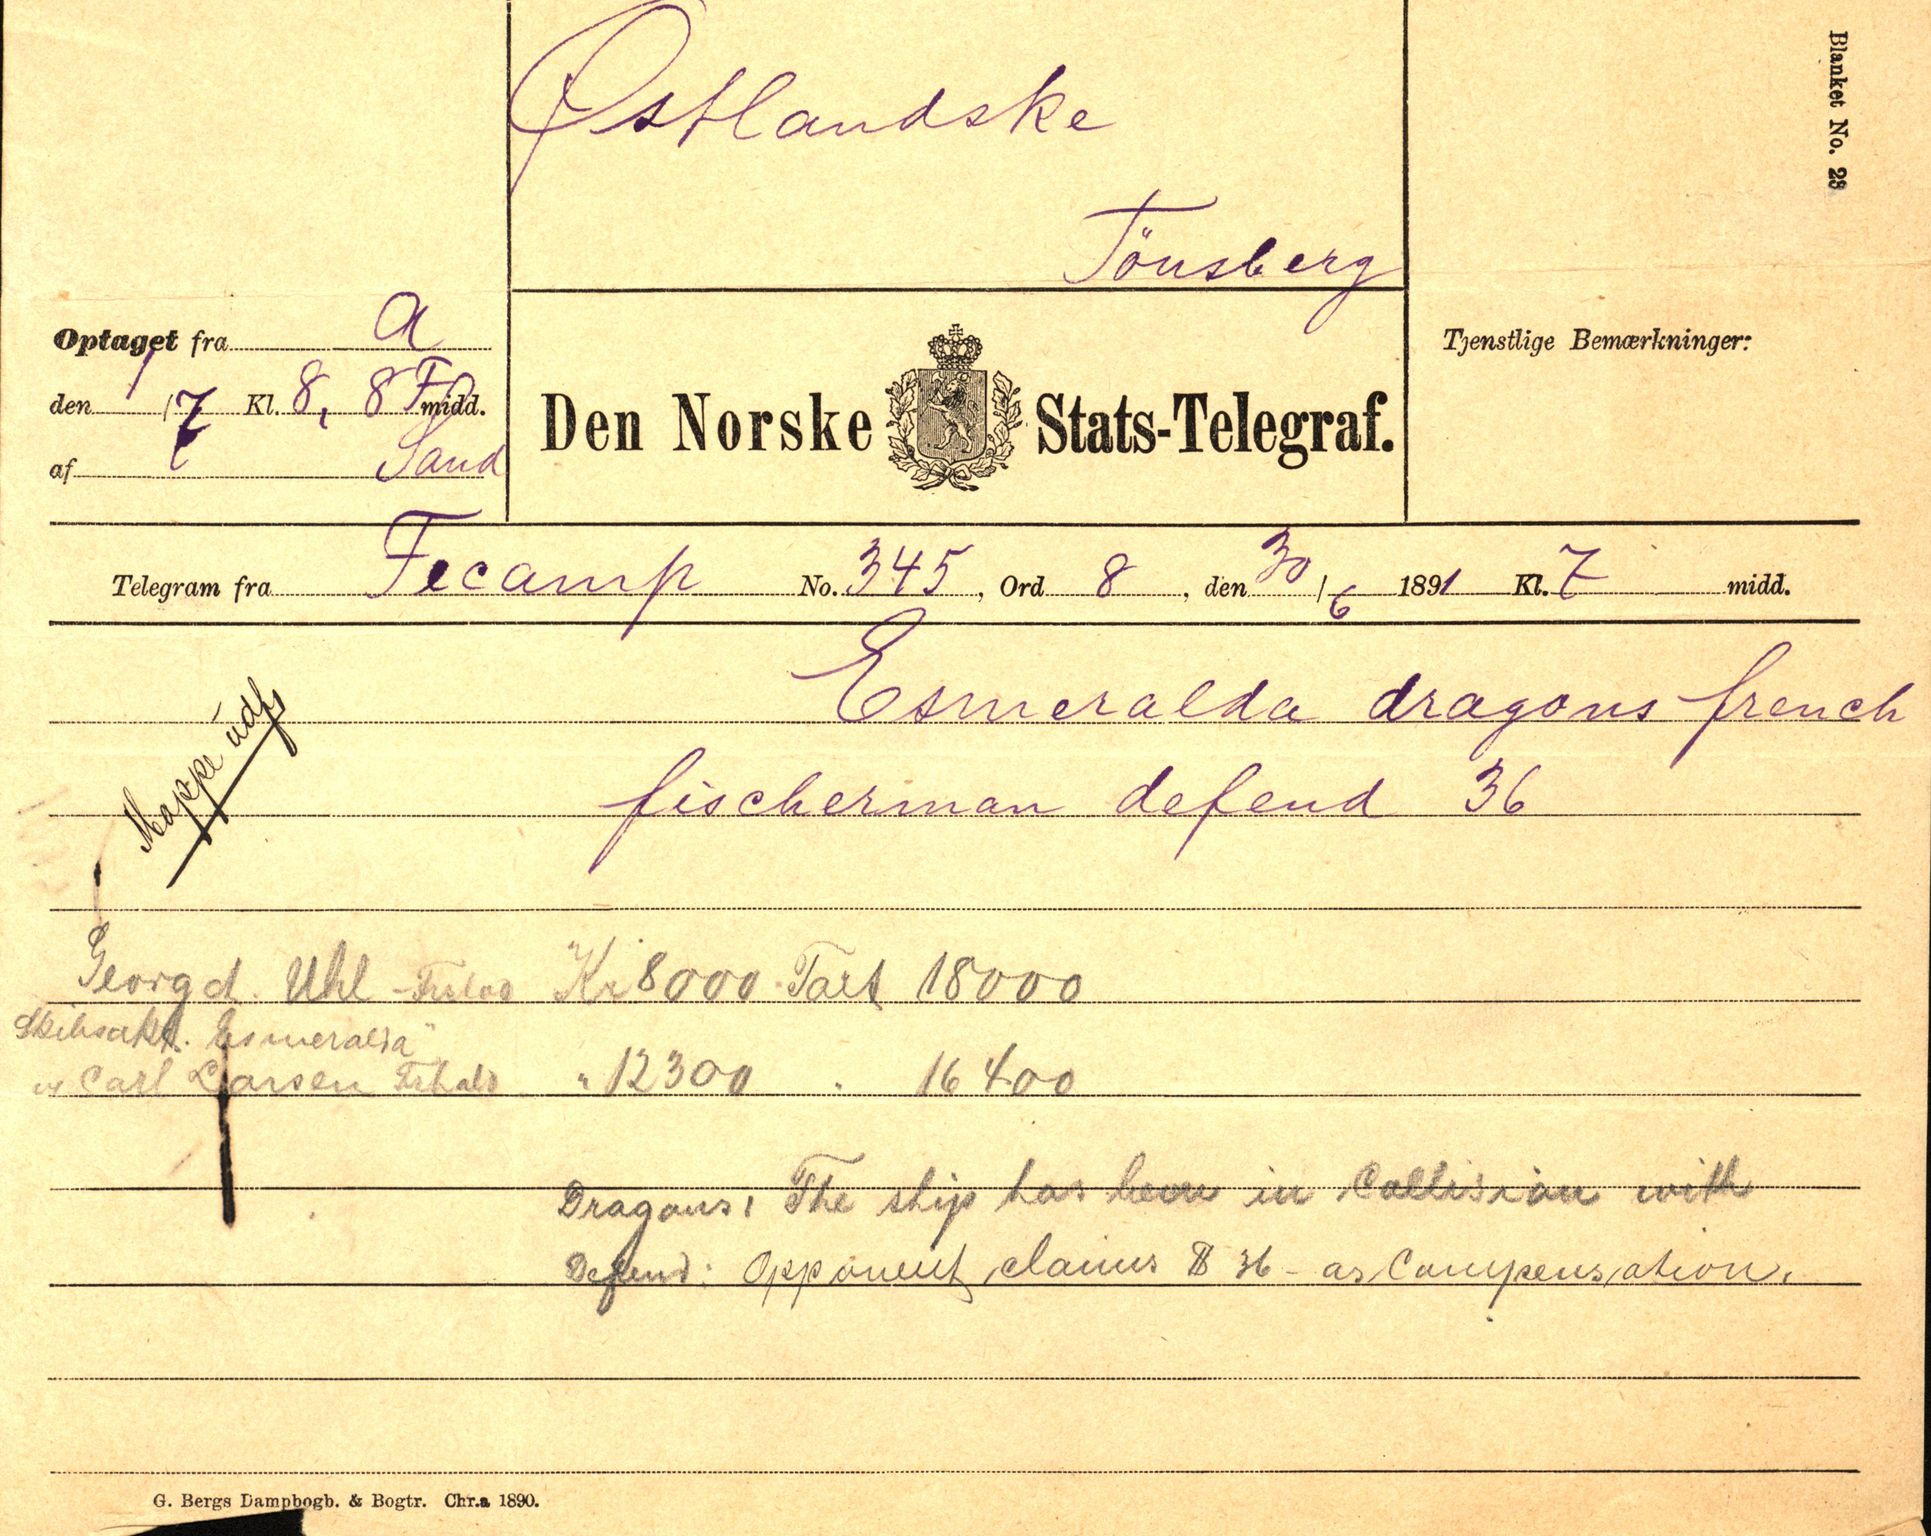 Blanket No. 28
Østlandske
Tönsberg
Optaget fra a
den 1/7 Kl. 8, 8 F midd.
af Sand
Den Norske Stats-Telegraf.
Tjenstlige Bemærkninger:
Telegram fra Fecamp No. 345, Ord 8, den 30/6 1891 Kl. 7 midd.
Esmeralda dragons french
fischerman defend 36
Mappe udf
Georg d. Uhl Kr 8000 Taxt 18000
Skibsakt. Esmeralda"
Carl Larsen " 12300 " 16400
Dragons: The ship has been in Collision with
Defend: Opponent claims 36 - as Compensation.
G. Bergs Dampbogb. & Bogtr. Chr.a 1890.